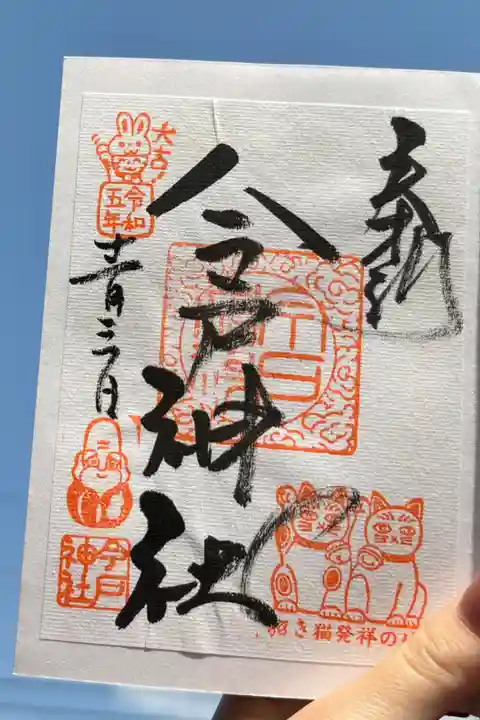 奉拝
今戸神社
大吉
令和
五年
月三日
今戸
神社
招き猫発祥の